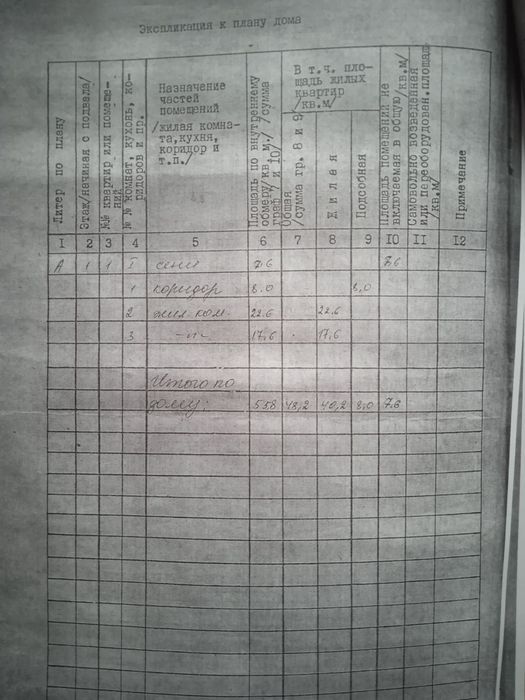 Экспликация к плану дома
Литер по плану
Этаж/начиная с подвала/
№№ квартир или помеще-
ний
№ № комнат, кухонь, ко-
ридоров и пр.
Назначение
частей
помещений
/жилая комна-
та,кухня,
коридор и
т.п./
Площадь по внутреннему
обмеру/кв.м./сумма
граф 7 и 10/
В т.ч. пло-
щадь жилых
квартир
/кв.м/
Общая
/сумма гр. 8 и 9/
Жилая
Подсобная
Площадь помещений не
включаемая в общую/кв.м/
Самовольно возведенная
или переоборудован.площадь
/кв.м/
Примечание
I 2 3 4 5 6 7 8 9 IO II I2
А 1 1 I сени 7.6 7.6
1 коридор 8.0 8,0
2 жил ком. 22.6 22.6
3 -"- 17,6 17,6
Итого по
дому: 55.8 48,2 40,2 8,0 7.6